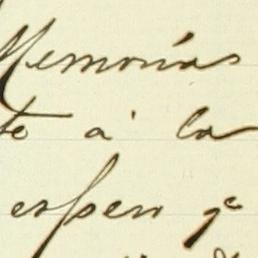 Memorias
te á la
espero qe